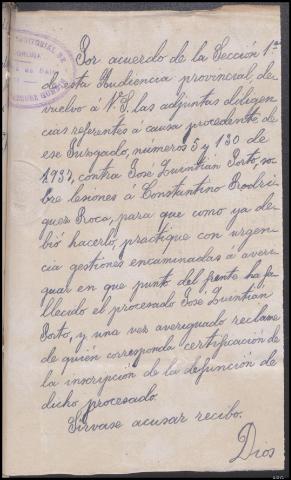 Por acuerdo de la Sección 1ª
de esta Audiencia provincial, de
vuelvo á V.S. las adjuntas diligen
cias referentes á causa procedente de
ese Juzgado, números 5 y 130 de
contra José Quintián Porto, so
bre lesiones á Constantino Rodrí
guez Roca, para que como ya de
bió hacerlo, practique con urgen
cia gestiones encaminadas a averi
guar en que punto del frente ha fa
llecido el procesado José Quintian
Porto, y una vez averiguado reclame
de quién corresponda certificación de
la inscripción de la defunción de
dicho procesado.
Sírvase acusar recibo.
Dios